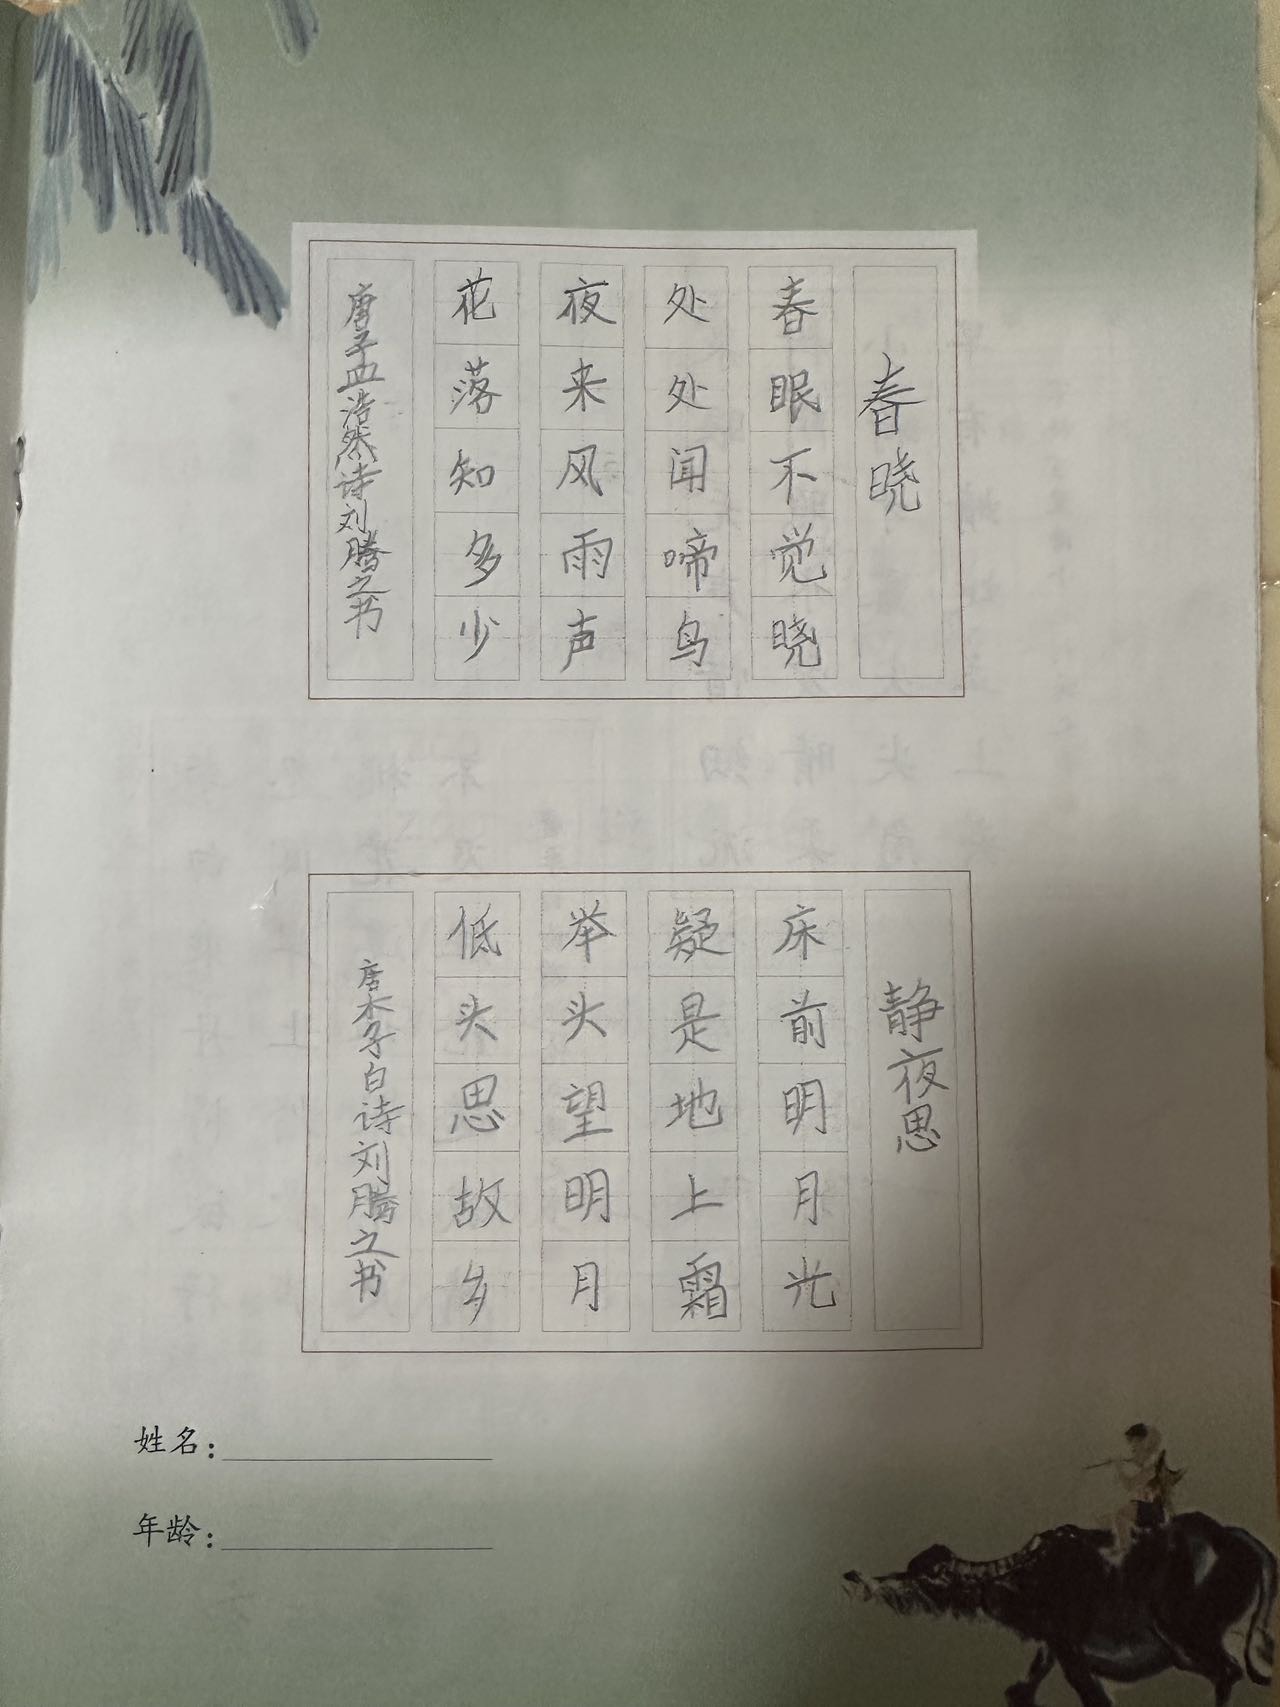 春晓
春眠不觉晓
处处闻啼鸟
夜来风雨声
花落知多少
唐孟浩然诗刘腾之书
静夜思
床前明月光
疑是地上霜
举头望明月
低头思故乡
唐李白诗刘腾之书
姓名：
年龄：